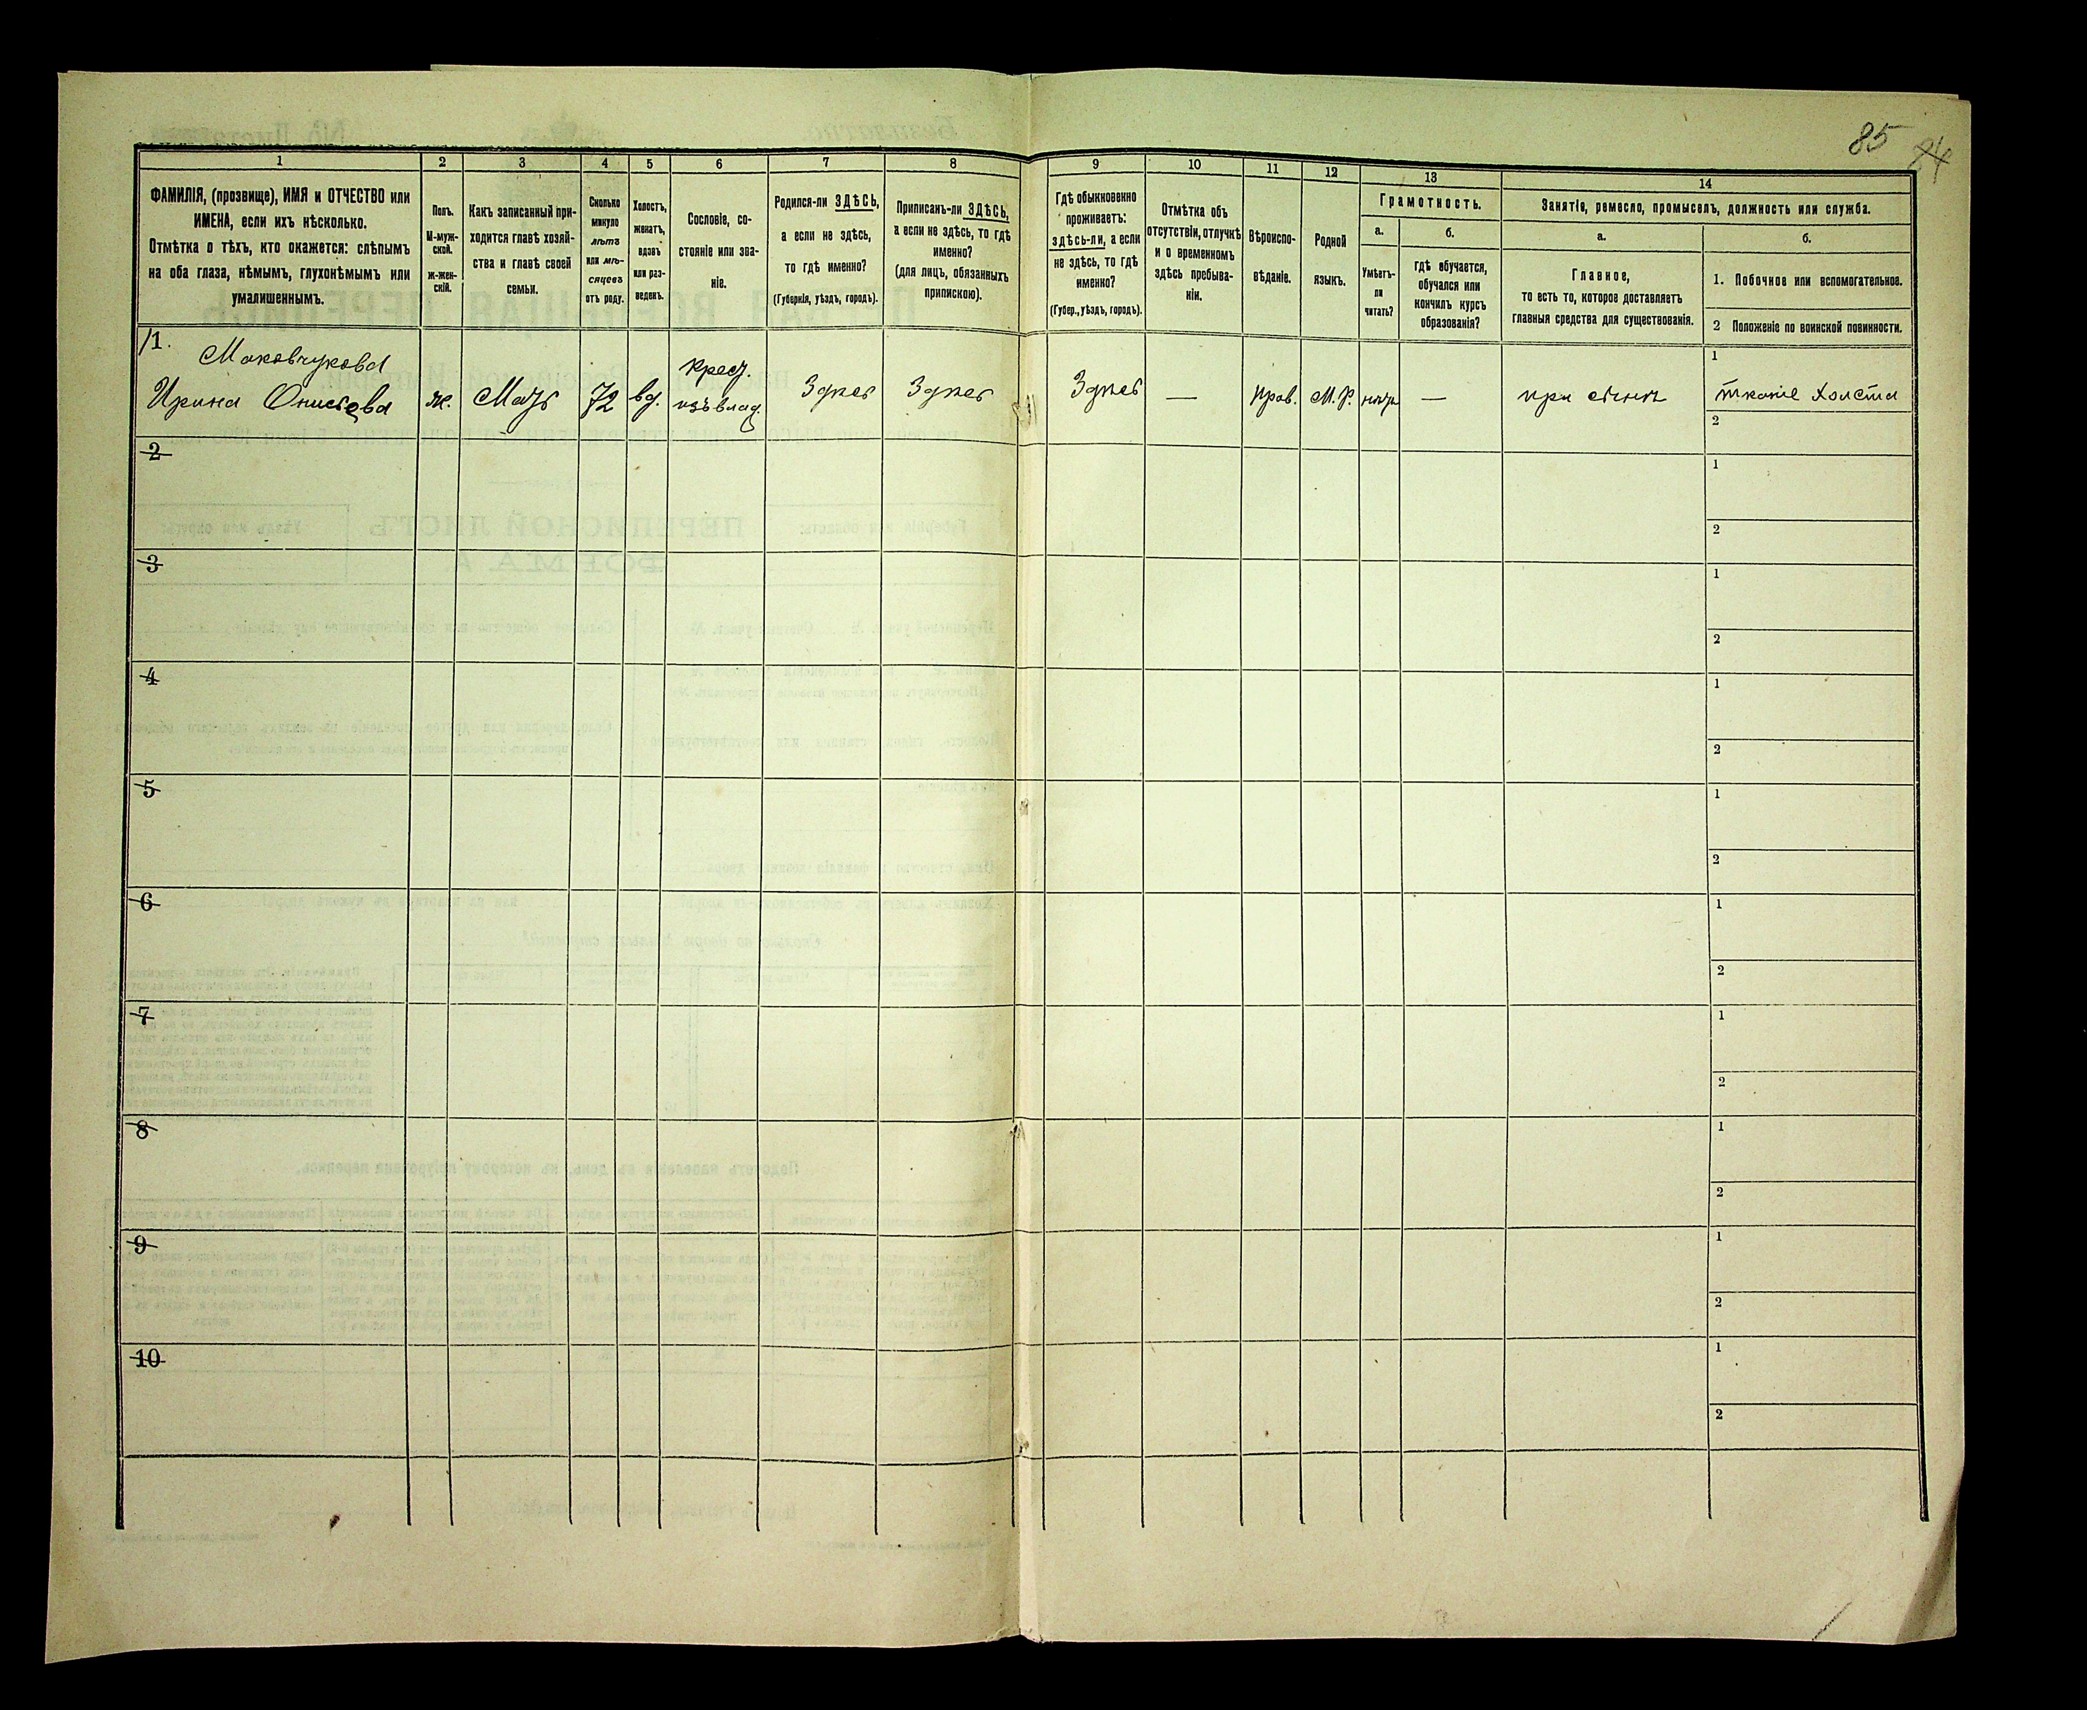 85 84
1
2
3
4
5
6
7
8
9
10
11
12
13
14
ФАМИЛІЯ, (прозвище), ИМЯ и ОТЧЕСТВО или
ИМЕНА, если ихъ нѣсколько.
Отмѣтка о тѣхъ, кто окажется: слѣпымъ
на оба глаза, нѣмымъ, глухонѣмымъ или
умалишеннымъ.
Полъ.
М-муж-
ской.
ж-жен-
скій.
Какъ записанный при-
ходится главѣ хозяй-
ства и главѣ своей
семьи.
Сколько
минуло
лѣтъ
или мѣ-
сяцевъ
отъ роду.
Холостъ,
женатъ,
вдовъ
или раз-
веденъ.
Сословіе, со-
стояніе или зва-
ніе.
Родился-ли ЗДѢСЬ,
а если не здѣсь,
то гдѣ именно?
(Губернія, уѣздъ, городъ).
Приписанъ-ли ЗДѢСЬ,
а если не здѣсь, то гдѣ
именно?
(для лицъ, обязанныхъ
припискою).
Гдѣ обыкновенно
проживаетъ:
здѣсь-ли, а если
не здѣсь, то гдѣ
именно?
(Губер., уѣздъ, городъ).
Отмѣтка объ
отсутствіи, отлучкѣ
и о временномъ
здѣсь пребыва-
ніи.
Вѣроиспо-
вѣданіе.
Родной
языкъ.
Грамотность.
а.
Умѣетъ-
ли
читать?
б.
гдѣ обучается,
обучался или
кончилъ курсъ
образованія?
Занятіе, ремесло, промыселъ, должность или служба.
а.
Главное,
то есть то, которое доставляетъ
главныя средства для существованія.
б.
1. Побочное или вспомогательное.
2 Положеніе по воинской повинности.
1.
Маковчукова
Ирина
ж.
Мать
72
вд.
крест.
изъ влад.
Здѣсь
Здѣсь
Здѣсь
—
Прав.
М.Р.
нѣтъ
—
при сынѣ
1
тканіе холста
2
2
1
2
3
1
2
4
1
2
5
1
2
6
1
2
7
1
2
8
1
2
9
1
2
10
1
2